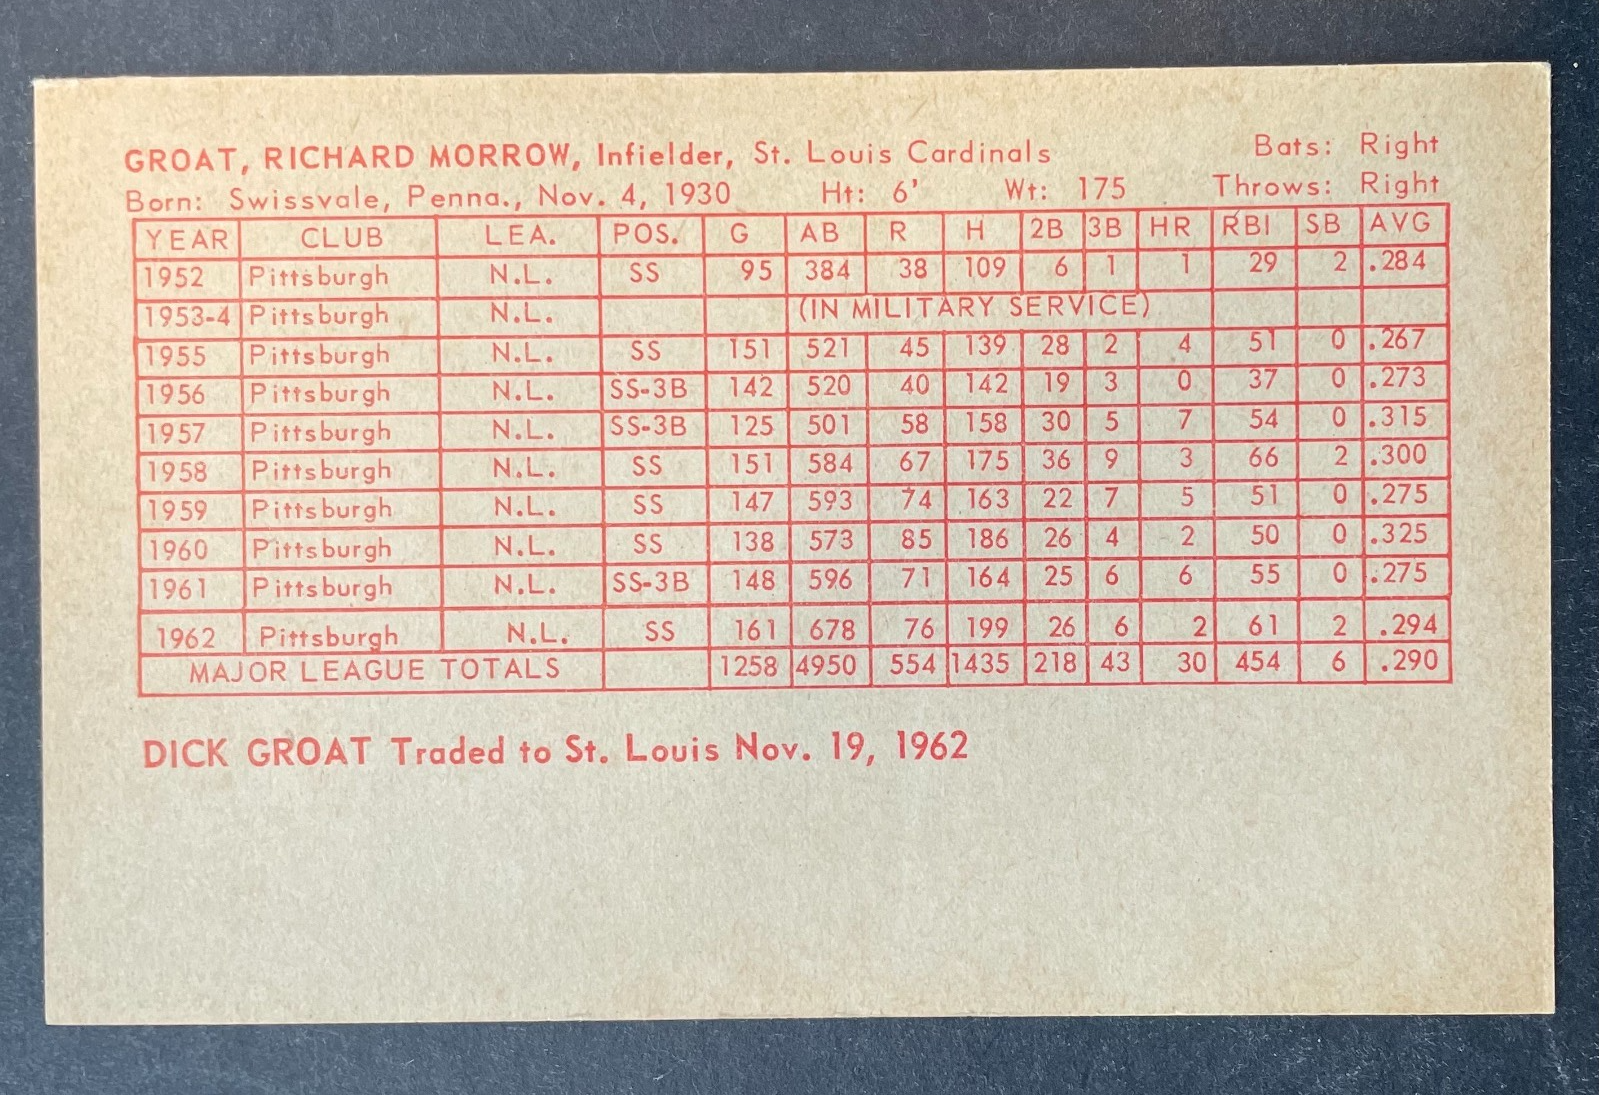 GROAT, RICHARD MORROW, Infielder, St. Louis Cardinals Bats: Right
Born: Swissvale, Penna., Nov. 4, 1930 Ht: 6' Wt: 175 Throws: Right
YEAR CLUB LEA. POS. G AB R H 2B 3B HR RBI SB AVG
1952 Pittsburgh N.L. SS 95 384 38 109 6 1 1 29 2 .284
1953-4 Pittsburgh N.L. (IN MILITARY SERVICE)
1955 Pittsburgh N.L. SS 151 521 45 139 28 2 4 51 0 .267
1956 Pittsburgh N.L. SS-3B 142 520 40 142 19 3 0 37 0 .273
1957 Pittsburgh N.L. SS-3B 125 501 58 158 30 5 7 54 0 .315
1958 Pittsburgh N.L. SS 151 584 67 175 36 9 3 66 2 .300
1959 Pittsburgh N.L. SS 147 593 74 163 22 7 5 51 0 .275
1960 Pittsburgh N.L. SS 138 573 85 186 26 4 2 50 0 .325
1961 Pittsburgh N.L. SS-3B 148 596 71 164 25 6 6 55 0 .275
1962 Pittsburgh N.L. SS 161 678 76 199 26 6 2 61 2 .294
MAJOR LEAGUE TOTALS 1258 4950 554 1435 218 43 30 454 6 .290
DICK GROAT Traded to St. Louis Nov. 19, 1962